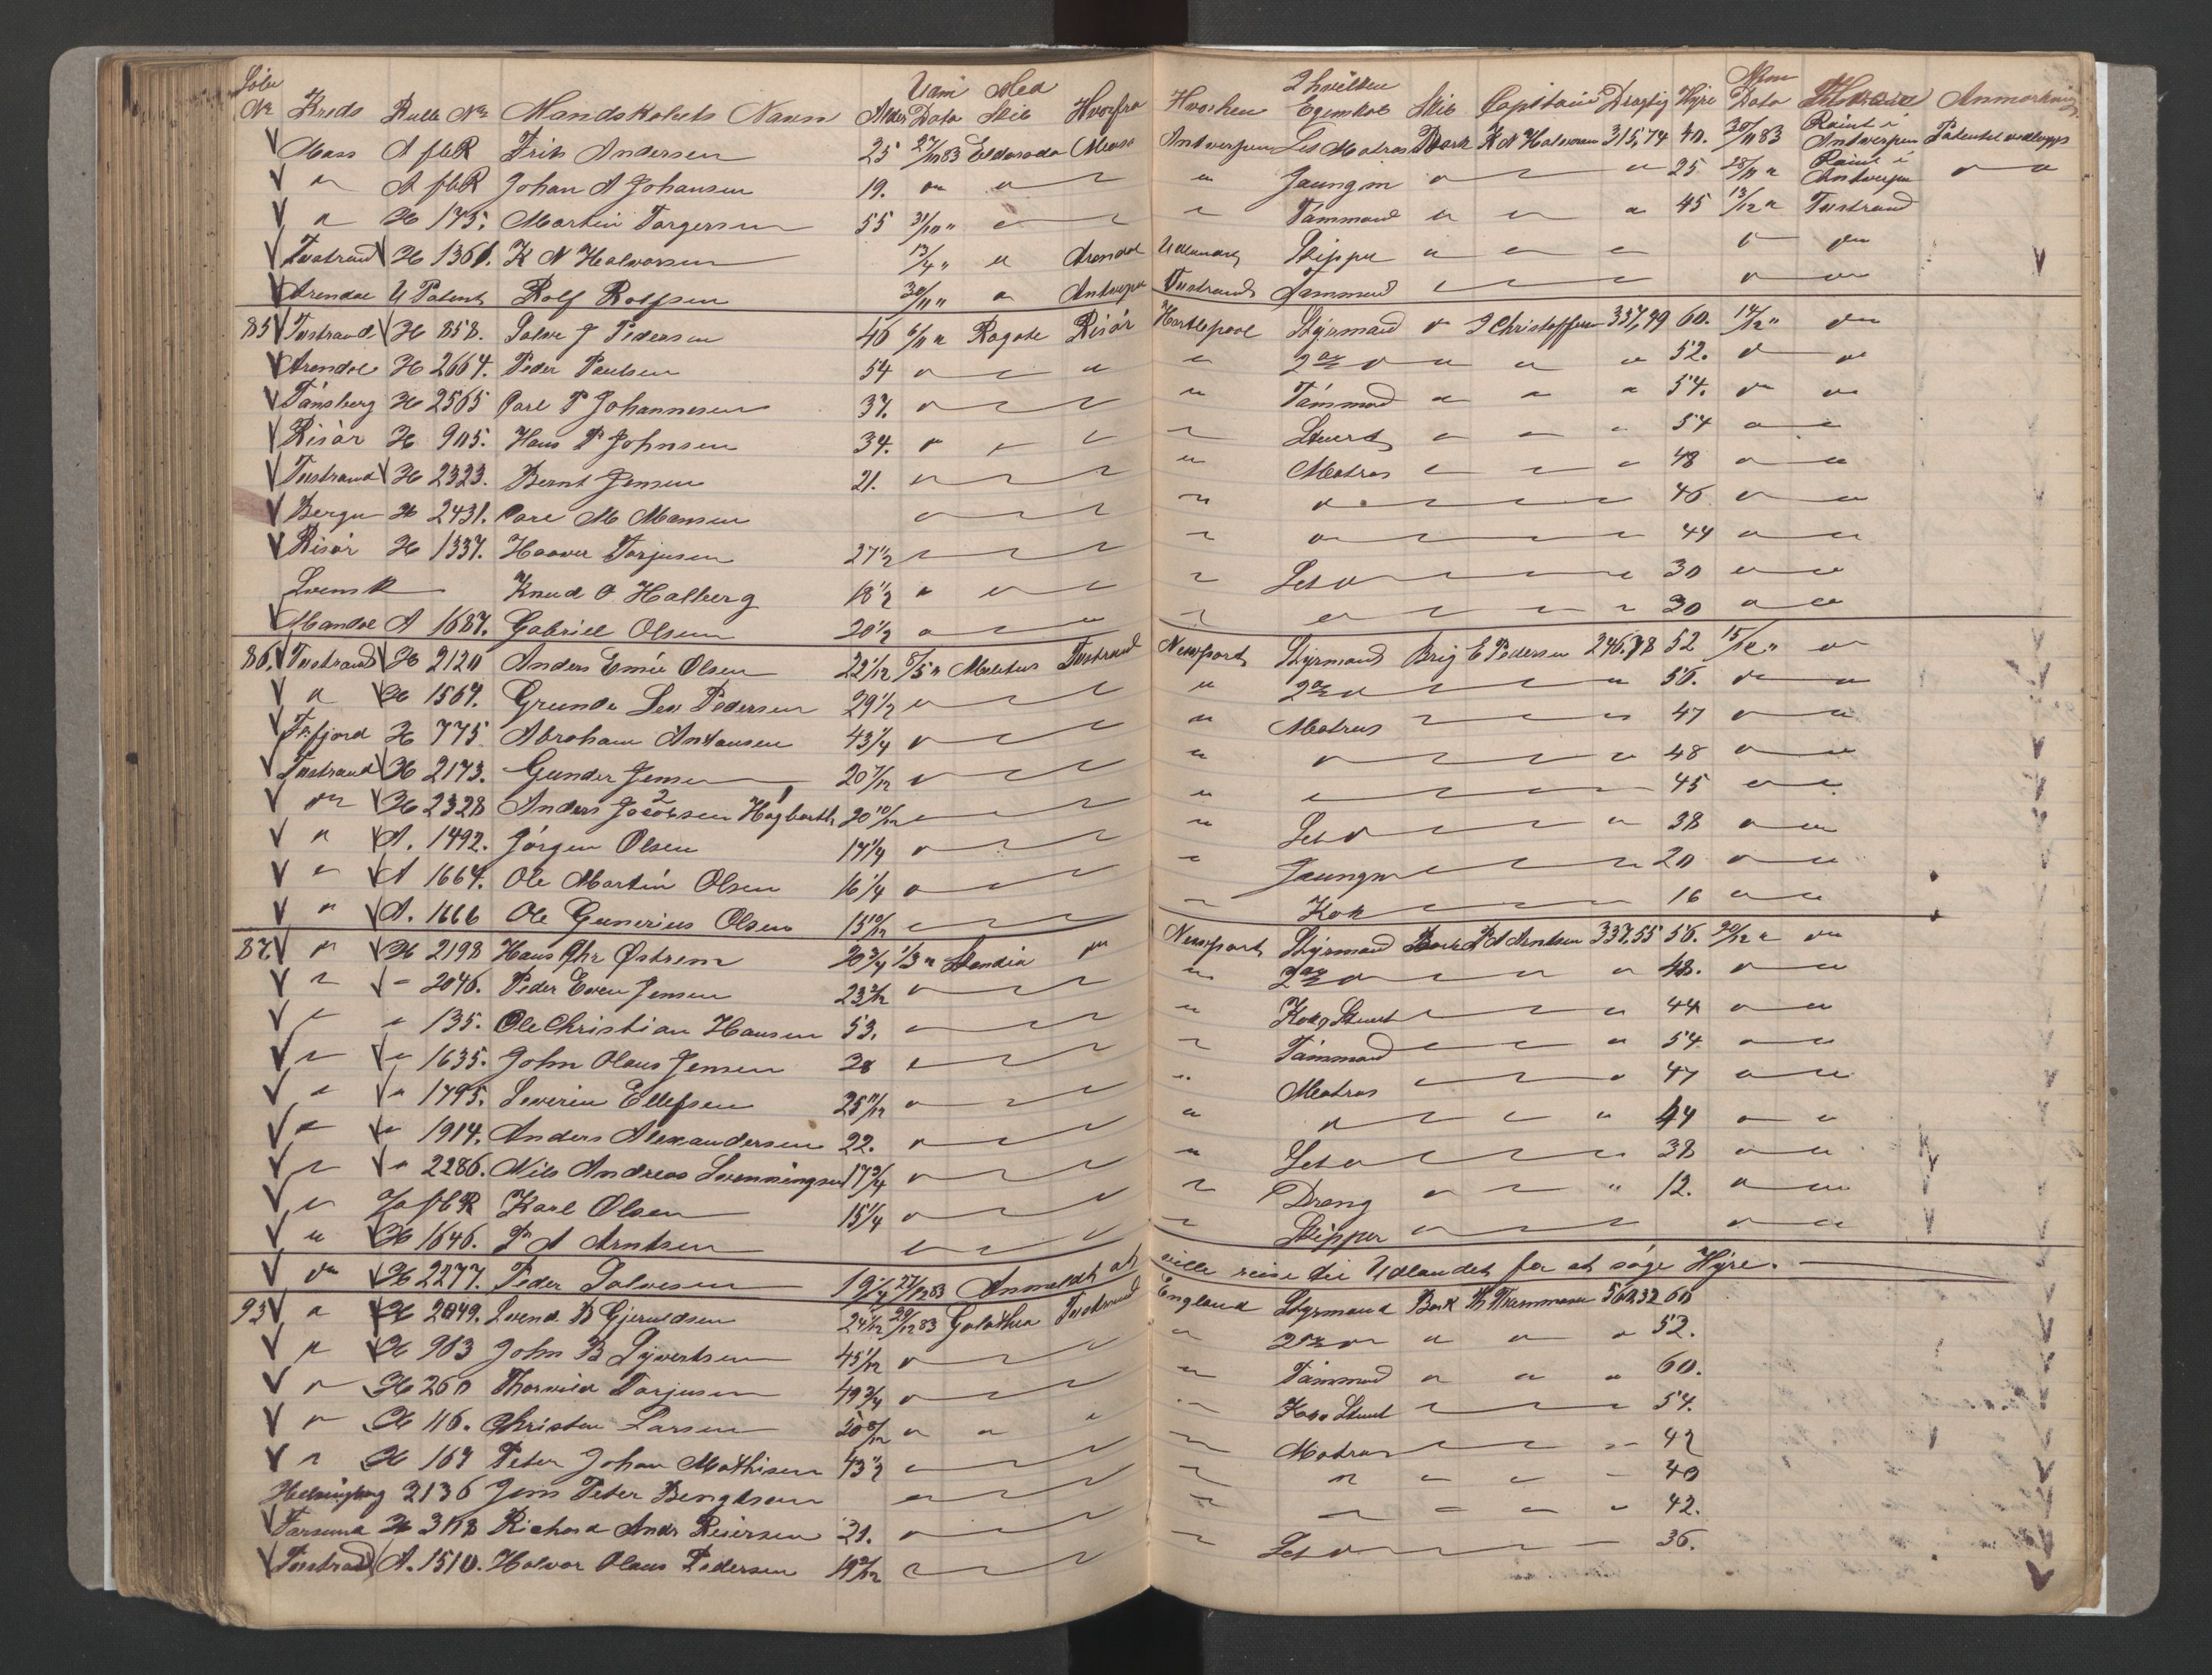 Löbe
Nr Kreds Rulle Nr Mandskabets Navn Alder Dato Skib Hvorfra Hvorhen Egenskab Skib Capitain Drægtig Hyre Dato Anmærkning
A fbR Erik Andersen 25 27/10 83 Eldorado Antwerpen Let Matros Bark K N Halvorsen 315,74 40. 30/11 83 Antwerpen
" A fbR Johan A Johansen 19. " " " Jungm " " 25 28/11 " Antwerpen " "
" H 175. Martin Torgersen 55 31/10 " " " Tømmand " " " 45 13/12 " Tvestrand
Tvestrand H 1361. K N Halvorsen 13/4 " " Arendal Udlandet Skipper " " " " "
Arendal U Patent Rolf Rolfsen 30/11 " " Antwerpen Tvestrand Tømmand " " " " "
85 Tvestrand H 858. J Pedersen 40 6/11 " Rogate Risör Hartlepool Styrmand " J Christoffersen 337,49 60. 14/12 " "
Arendal H 2664. Peder Paulsen 54 " " " " 2den " " " " 52. " "
Tönsberg H 2565 Carl P Johannesen 37. " " " " Tömmand " " " 54. " "
Risör H 905. Hans P Johnsen 34. " " " " Stuert " " " 54 " "
Tvestrand H 2323. Bernt Jensen 21. " " " " Matros " " " 48 " "
Bergen H 2431. Carl M Monsen " " " " " 46 " "
Risör H 1337. Haaver Torjusen 27 1/2 " " " " " 44 " "
Svensk Knud O Halberg 18 1/2 " " " " Let " " " 30 " "
Mandal A 1687. Gabriel Olsen 20 1/2 " " " " " " " " 30 " "
86. Tvestrand H 2120 Anders Emil Olsen 22 1/12 8/5 " Tvestrand Newport Styrmand Brig E Pedersen 246.78 52 15/12 " "
" H 1567. Grunde Pedersen 29 1/2 " " " " 2den " " " 56. " "
H 775 Abraham Antonsen 43 1/4 " " " " Matros " " " 47 " "
Tvestrand H 2173. Gunder Jensen 20 7/12 " " " " " " " 48 " "
" H 2328 Anders Jacobsen Hagbarth 20 10/12 " " " " " " 45 " "
" A. 1492. Jörgen Olsen 17 1/4 " " " " Let " " " 38 " "
" A 1664. Ole Martin Olsen 16 1/4 " " " " Jungm " " " 20 " "
" A. 1666 Ole Gunerius Olsen 15 10/12 " " " " Kok " " 16 " "
87. " H 2198 Hans Chr Østrem 20 3/4 1/3 " " Newport Styrmand Bark P A Arntsen 337.55 56. 20/12 " "
" " 2046. Peder Even Jensen " " " " 2den " " " 48. " "
" " 135. Ole Christian Hansen 53. " " " " Kok o Stuert " " " 44 " "
" " 1635. John Olaus Jensen 28 " " " " Tömmand " " " 54 " "
" " 1795. Severin Ellefsen 25 11/12 " " " " Matros " " " 47 " "
" " 1914. Anders Alexandersen 22. " " " " " " " " 44 " "
" " 2286. Nils Andreas Svenningsen 17 3/4 " " " " Let " " " 38 " "
" fbR Karl Olsen 15 1/4 " " " " Dreng " " " 12. " "
" H 1646. P A Arntsen " " " " Skipper " " " "
" H 2277. Peder Salvesen 19 1/4 27/12 83 Anmeldt at ville reise til Udlandet for at søge Hyre.
93 " H 2049. Svend B Gjeruldsen 24 1/12 29/12 83 Galathea Tvestrand England Styrmand Bark 60
" H 903 John B Syvertsen 45 1/12 " " " " 2den " " " 52.
" H 260 Torjusen 49 3/4 " " " " Tömmand " " " 60.
" H 116. Christen Larsen 50 8/12 " " " " Kok o Stuert " " 54.
" H 167 Peter Johan Mathisen 43 1/2 " " " " Matros " " " 42
Helsingborg 2136 Jens Peter Bengtson " " " " " " " 40
Farsund H Richard Andr Reiersen 21. " " " " " " " 42.
Tvestrand A. 1510. Halvor Olaus Pedersen 19 9/12 " " " " Let " " " 36.